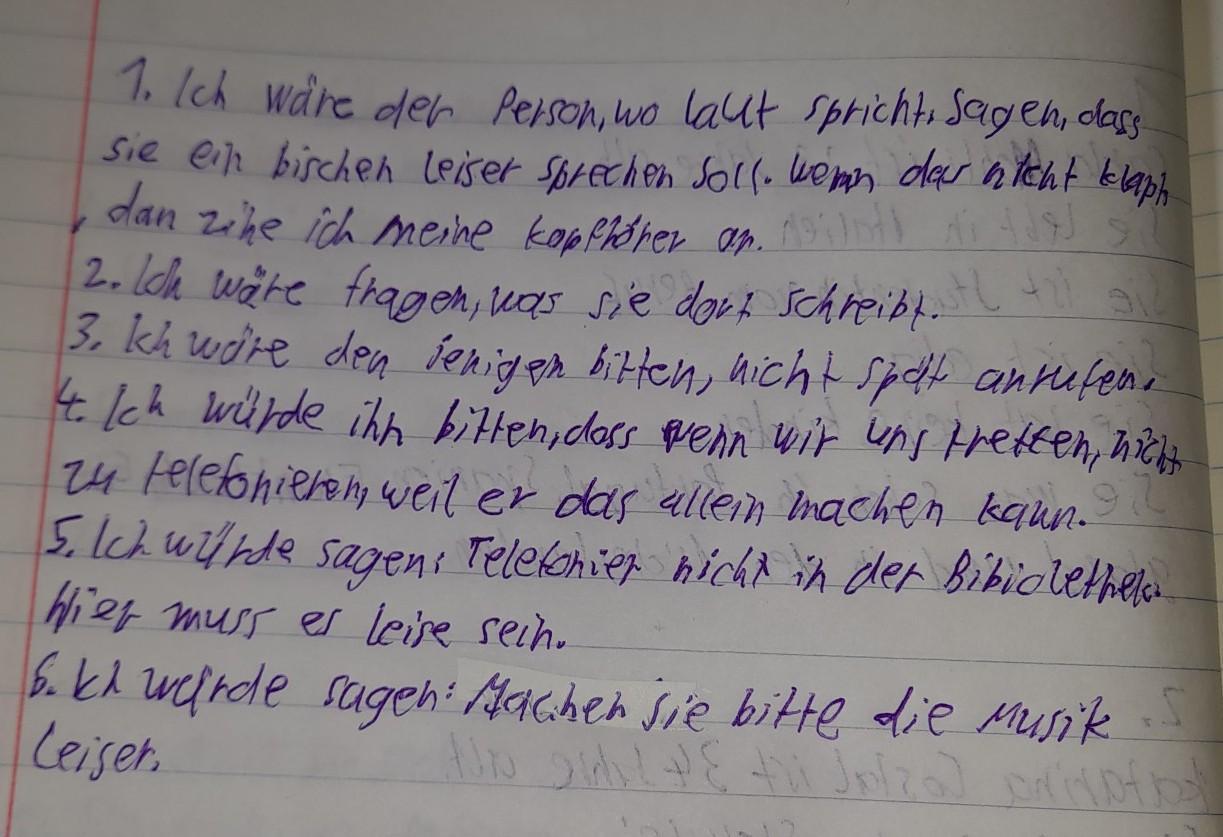 1. Ich wäre der Person, wo laut spricht, sagen, dass
sie ein bischen leiser sprechen soll. wenn das nicht klaph
, dan zihe ich meine kopfhörer an.
2. Ich wäre fragen, was sie dort schreibt.
3. Ich wäre den jenigen bitten, nicht spät anrufen.
4. Ich würde ihn bitten, dass wenn wir uns treffen, nicht
zu telefonieren, weil er das allein machen kann.
5. Ich würde sagen: Telefonier nicht in der Bibiolethek.
Hier muss es leise sein.
6. Ich würde sagen: Machen sie bitte die Musik
Leiser.